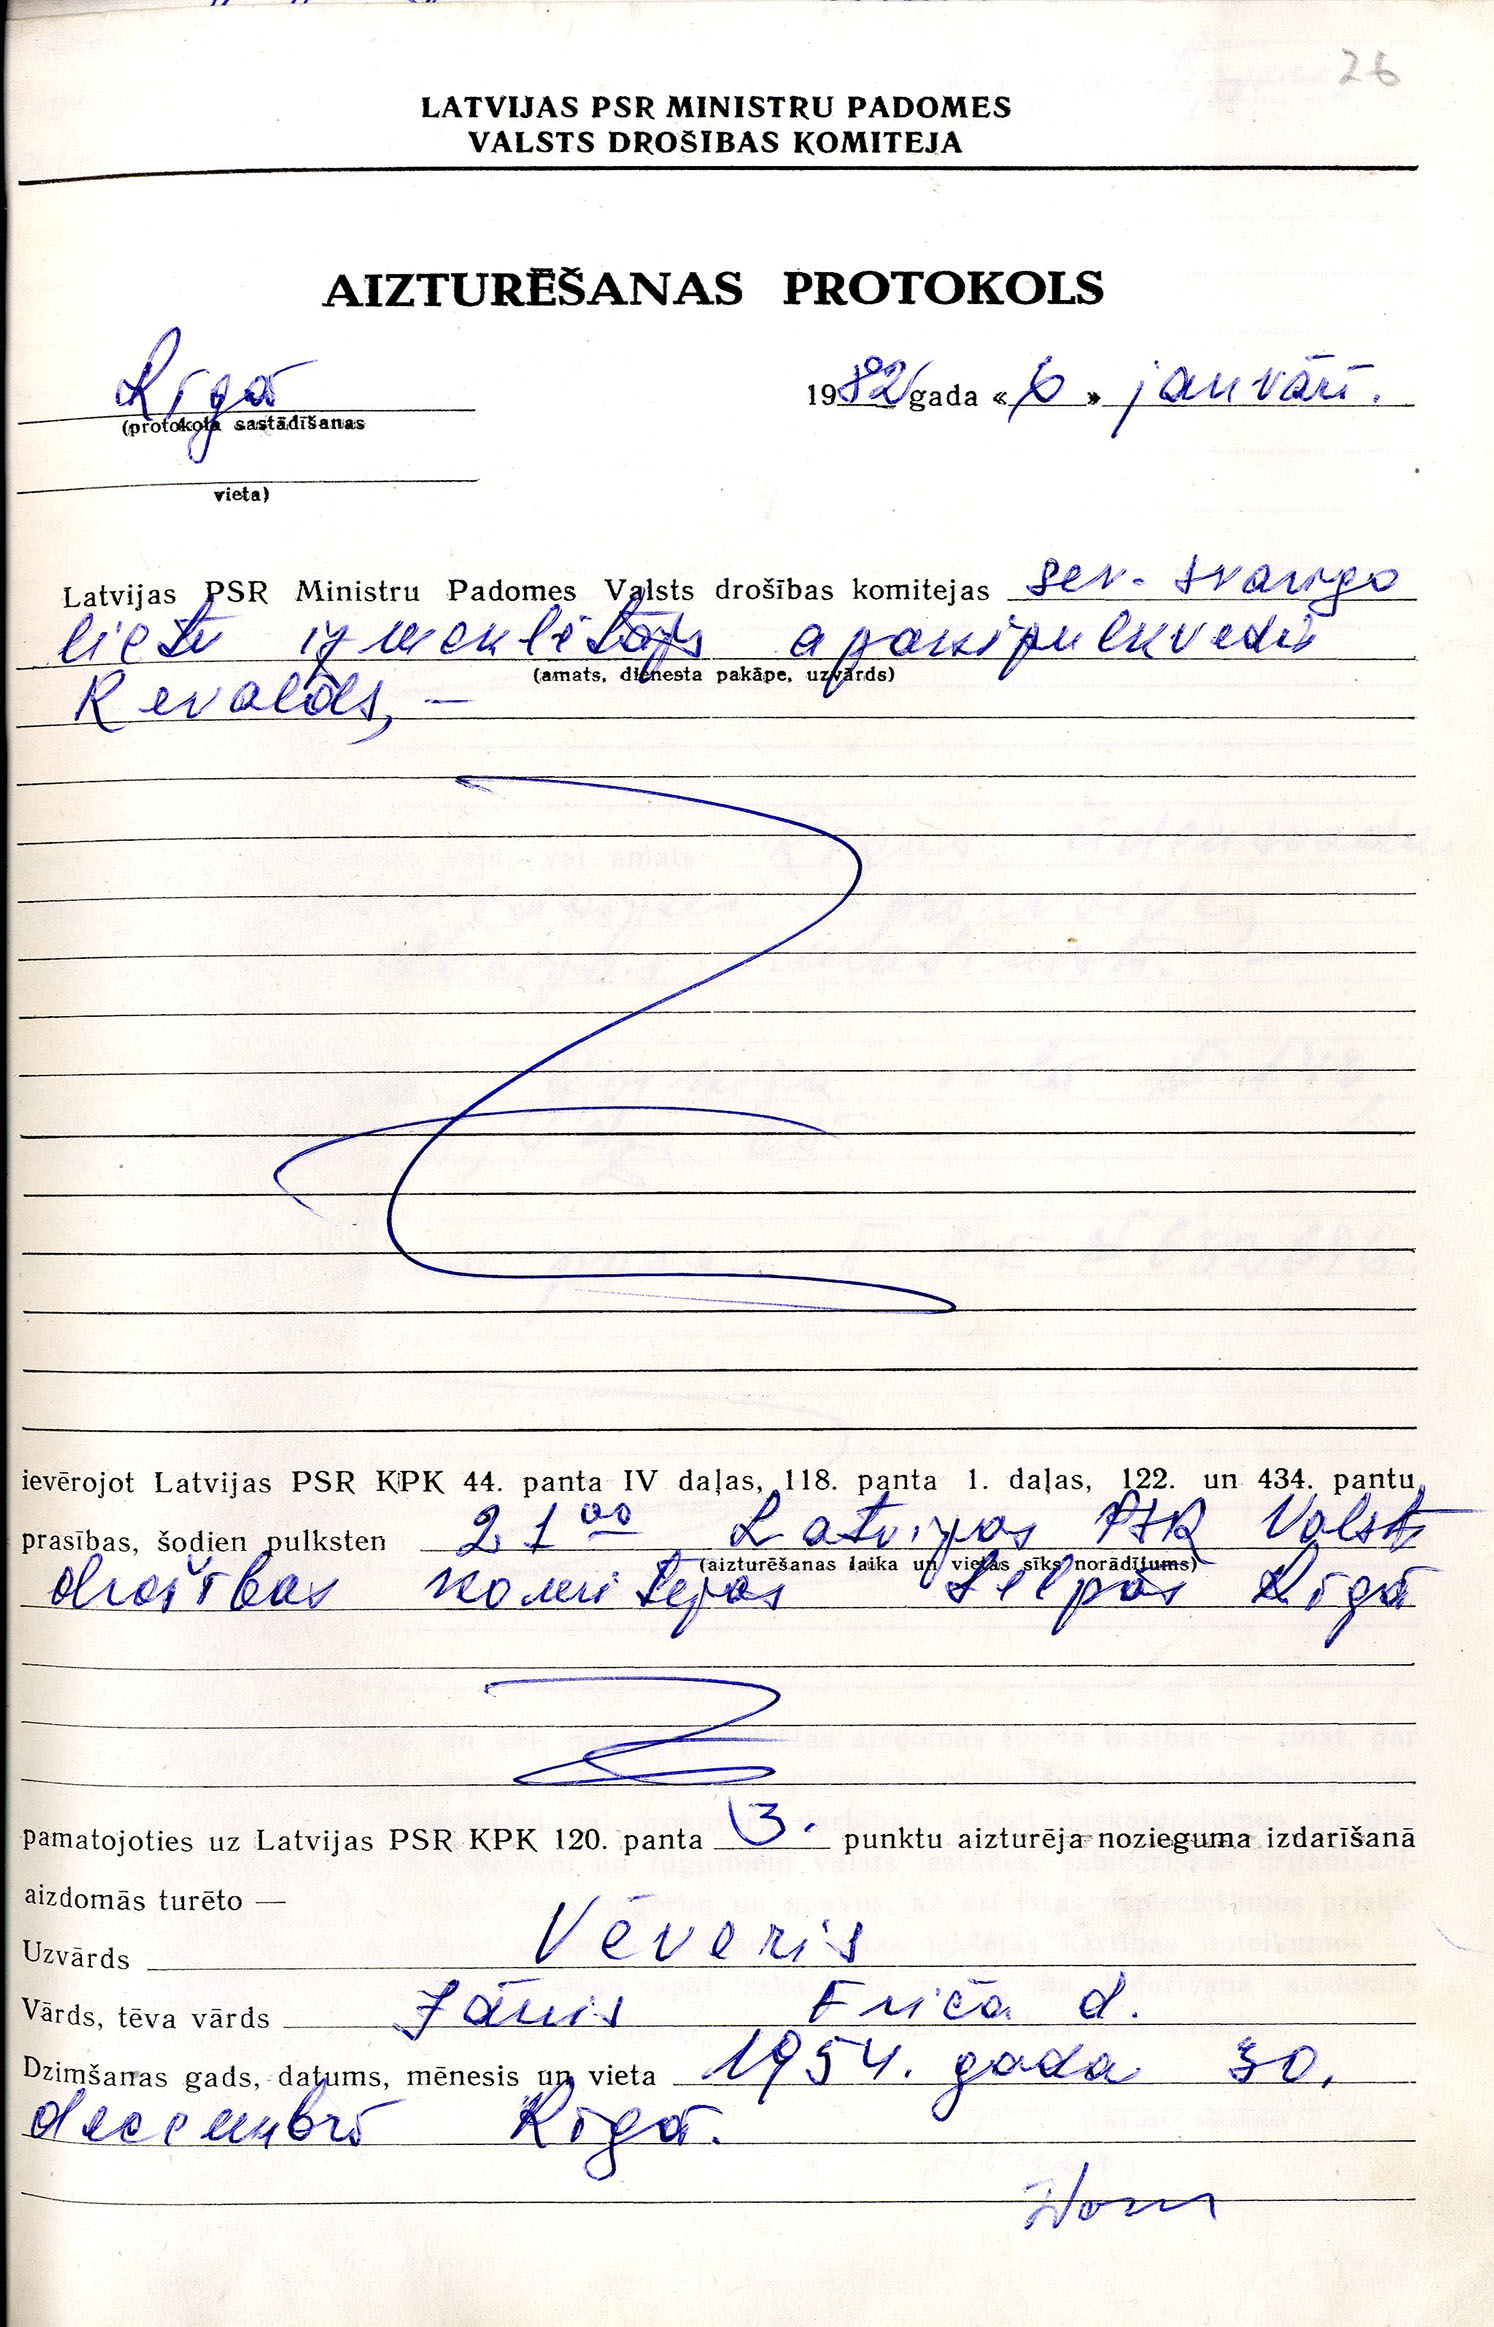 26
LATVIJAS PSR MINISTRU PADOMES
VALSTS DROŠĪBAS KOMITEJA
AIZTURĒŠANAS PROTOKOLS
Rīgā 1982 gada «6» janvārī.
(protokola sastādīšanas
vieta)
Latvijas PSR Ministru Padomes Valsts drošības komitejas sev. svarīgo
lietu izmeklētājs apakšpulkvedis
(amats, dienesta pakāpe, uzvārds)
Kevalds, —
ievērojot Latvijas PSR KPK 44. panta IV daļas, 118. panta 1. daļas, 122. un 434. pantu
prasības, šodien pulksten 21 00 Latvijas PSR Valsts
(aizturēšanas laika un vietas sīks norādījums)
drošības komitejas telpās Rīgā
pamatojoties uz Latvijas PSR KPK 120. panta 3. punktu aizturēja nozieguma izdarīšanā
aizdomās turēto —
Uzvārds Vēveris
Vārds, tēva vārds Jānis Friča d.
Dzimšanas gads, datums, mēnesis un vieta 1954. gada 30.
decembrī Rīgā.